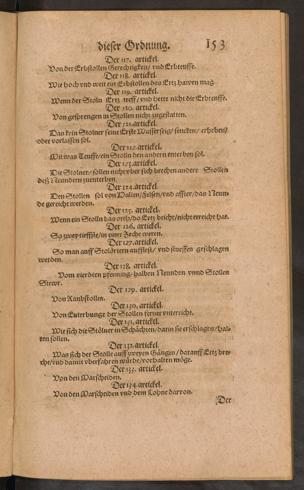 dieser Ordnung. 153
Der 117. artickel.
Von der Erbstollen Gerechtigkeit/ vnd Erbteuffe.
Der 118. artickel.
Wie hoch vnd weit ein Erbstollen das Ertz hawen mag.
Der 119. artickel.
Wenn der Stoln Ertz treff/ vnd hette nicht die Erbteuffe.
Der 120. artickel.
Von gesprengen in Stollen nicht zugestatten.
Der 121. artickel.
Das kein Stolner seine Erste Wasserseig/ sencken/ erheben/
oder vorlassen sol.
Der 122. artickel.
Mit was Teuffe/ ein Stolln den andern enterben sol.
Der 123. artickel.
Die Stolner/ sollen nicht vber sich brechen andere Stollen
des Neundern zuenterben.
Der 124. artickel.
Den Stollen sol von
de gereicht werden.
Der 125. artickel.
Wenn ein Stolln das orth/ do Ertz bricht/ nicht erreicht hat.
Der 126. artickel.
So zwey tieffste/ in einer Zeche weren.
Der 127. artickel.
So man auff Stolörtern aufflest/ vnd stueffen geschlagen
werden.
Der 128. artickel.
Vom vierdten pfenning/ halben Neundten vnnd Stollen
Stewr.
Der 129. artickel.
Von Raubstollen.
Der 130. artickel.
Von Enterbunge der Stollen ferner vnterricht.
Der 131. artickel.
Wie sich die Stölner in Schächten/ darin sie erschlagen/ hal-
ten sollen.
Der 132. artickel.
Was sich der Stolle auff zweyen Gängen/ darauff Ertz bre-
che/ vnd damit vberfahren würde/ vorhalten möge.
Der 133. artickel.
Von den Marscheiden.
Der 134. artickel.
Von den Marscheiden vnd dem Lohne darvon.
Der